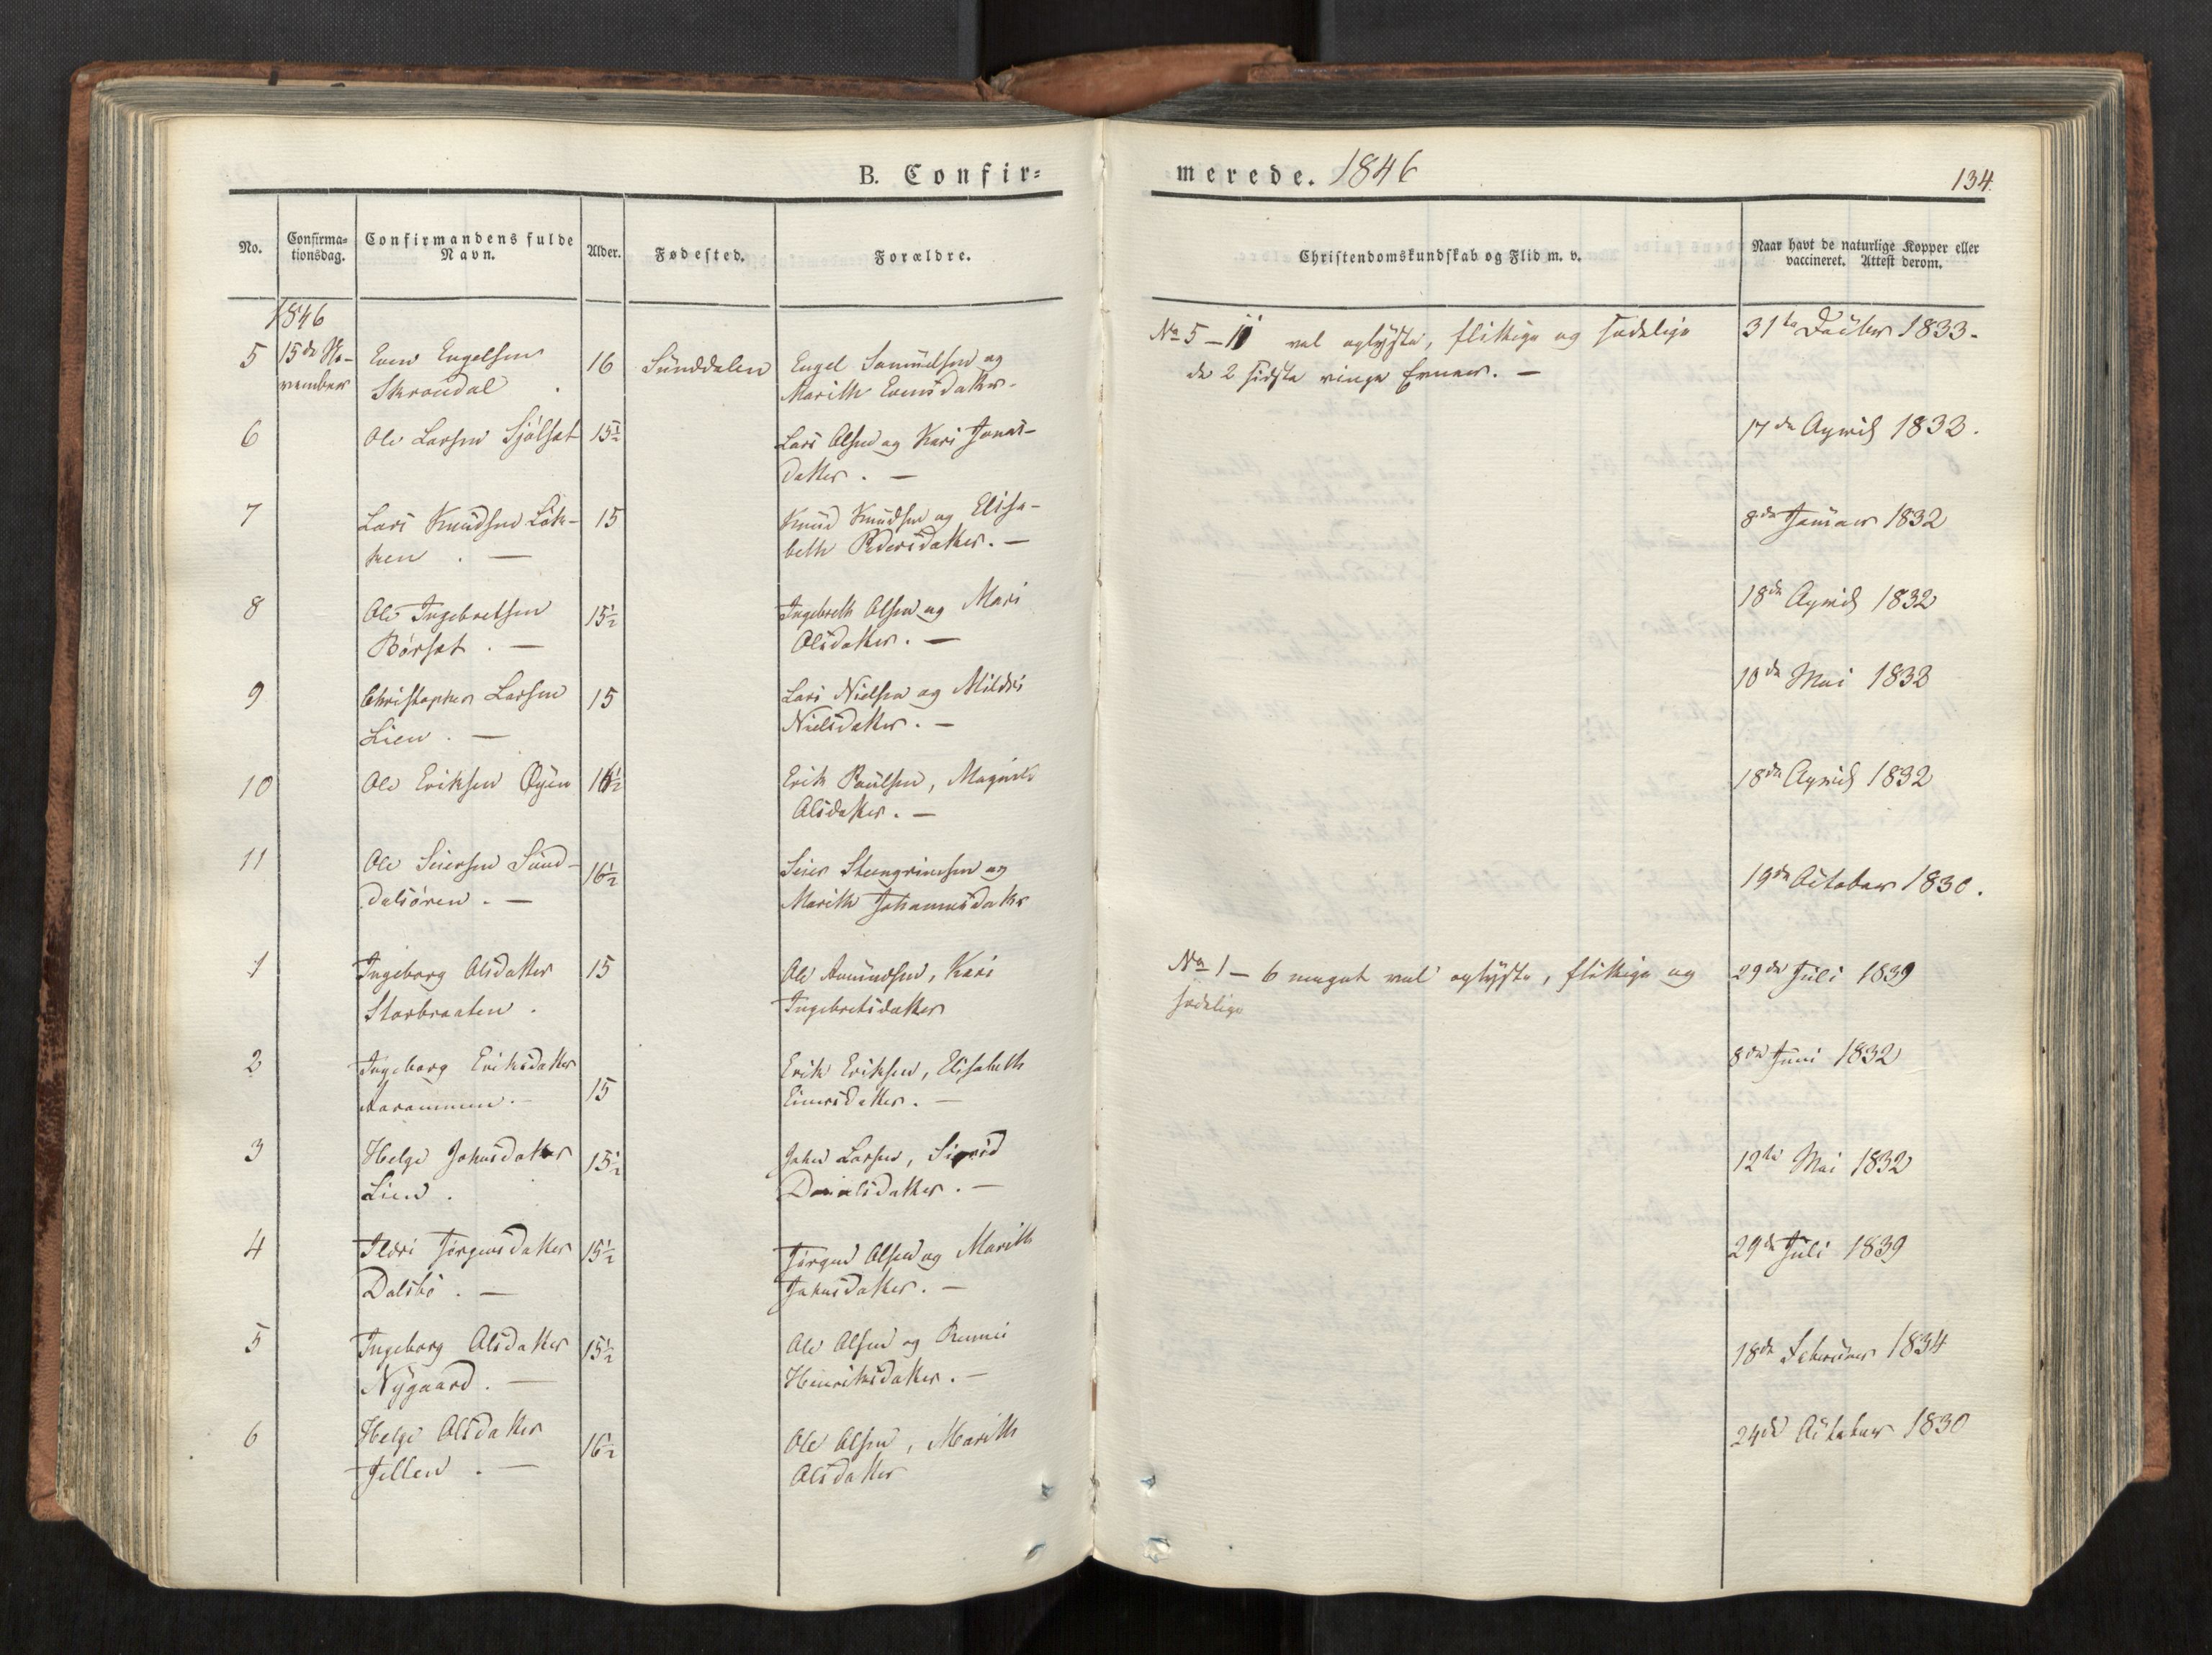 B. Confir=
merede. 1846
134.
No.
Confirma=
tionsdag.
Confirmandens fulde
Navn.
Alder.
Fødested.
Forældre.
Christendomskundskab og Flid m. v.
Naar havt de naturlige Kopper eller
vaccineret. Attest derom.
1846
5 15de No- Even Engelsen 16 Sünddalen Engel Samüelsen og
vember Skrondal . Marith Evensdatter.
No 5 – 11 vel oplyste, flittige og sædelige 31te 1833.
de 2 sidste ringe Evner. –
6 Ole Larsen Sjølset 15½ Lars Olsen og Kari Jonas-
datter. –
17de April 1833.
7 Lars Knüdsen Løk- 15 Knüd Knüdsen og Elisa-
ken . — beth Pedersdatter. –
8de Januar 1832
8 Ole Ingebretsen 15½ Ingebreth Olsen og Mari
Børset . — Olsdatter. –
18de April 1832
9 Christopher Larsen 15 Lars Nielsen og Mildri
Lien . — Nielsdatter. –
10de Mai 1832
10 Ole Eriksen Øyen Erik Paülsen, Magnild
Olsdatter. –
18de April 1832
11 Ole Seiersen Sünd- 16½ Seier Steengrimsen og
dalsøren . – Marith Johannesdatter
19de October 1830.
1 Ingeborg Olsdatter 15 Ole Amündsen, Kari
Storbraaten . Ingebretsdatter
No 1 – 6 meget vel oplyste, flittige og 29de Juli 1839
sædelige
2 Ingeborg Eriksdatter 15 Erik Eriksen, Elisabeth
Einersdatter. –
8de Juni 1832
3 Helge Johnsdatter 15½ John Larsen, Sigrid
Lien . Danielsdatter. –
12te Mai 1832
4 Ildri Jørgensdatter 15½ Jørgen Olsen og Marith
Dalsbø . — Johnsdatter. –
29de Juli 1839
5 Ingeborg Olsdatter 15½ Ole Olsen og
Nygaard . — Henriksdatter. –
18de Februar 1834
6 Helge Olsdatter 16½ Ole Olsen, Marith
Jellen . — Olsdatter
24de October 1830